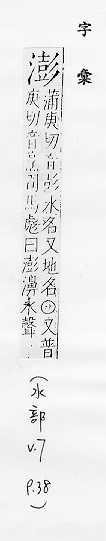 字彙
澎
蒲庚切音彭水名又地名○又普
庚切音烹司馬彪曰澎濞水聲
(水部
v.7
P.38)